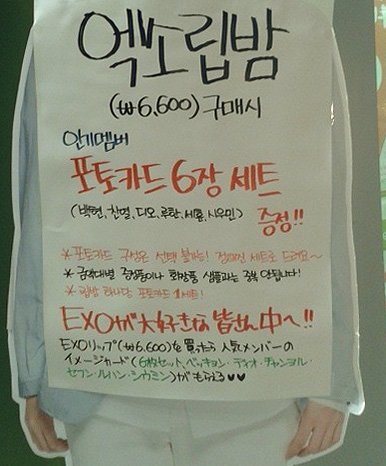 엑소립밤
(₩6,600) 구매시
인기멤버
포토카드 6장 세트
(백현, 찬열, 디오, 루한, 세훈, 시우민) 증정!!
* 포토카드 구성은 선택 불가능! 정해진 세트로 드려요~
* 금액대별 증정품이나 화장품 샘플과는 중복 안됩니다!
* 립밤 하나당 포토카드 1세트!
EXOが大好きな皆さん中へ!!
EXOリップ(₩6,600)を買ったら 人気メンバーの
イメージカード(6枚セット、ベッキョン・ディオ・チャンヨル・
セフン・ルハン・シウミン)がもらえる♥♥